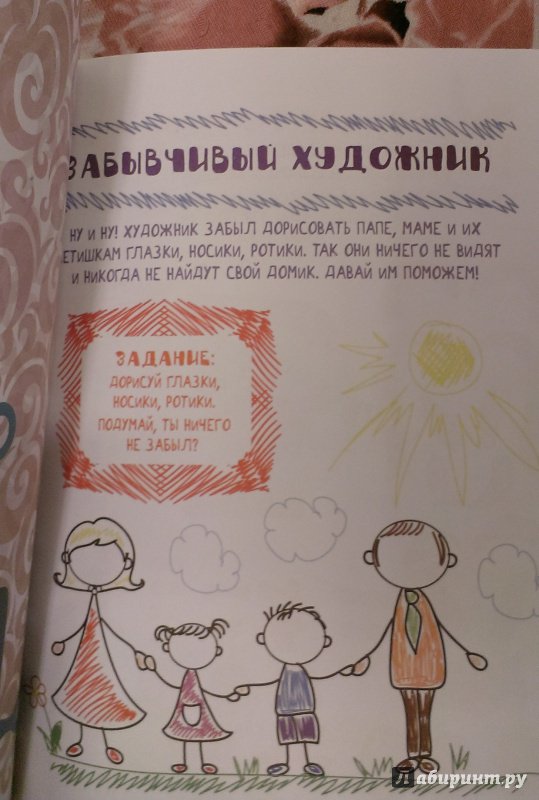 ЗАБЫВЧИВЫЙ ХУДОЖНИК
НУ И НУ! ХУДОЖНИК ЗАБЫЛ ДОРИСОВАТЬ ПАПЕ, МАМЕ И ИХ
ЕТИШКАМ ГЛАЗКИ, НОСИКИ, РОТИКИ. ТАК ОНИ НИЧЕГО НЕ ВИДЯТ
И НИКОГДА НЕ НАЙДУТ СВОЙ ДОМИК. ДАВАЙ ИМ ПОМОЖЕМ!
ЗАДАНИЕ:
ДОРИСУЙ ГЛАЗКИ,
НОСИКИ, РОТИКИ.
ПОДУМАЙ, ТЫ НИЧЕГО
НЕ ЗАБЫЛ?
Лабиринт.ру